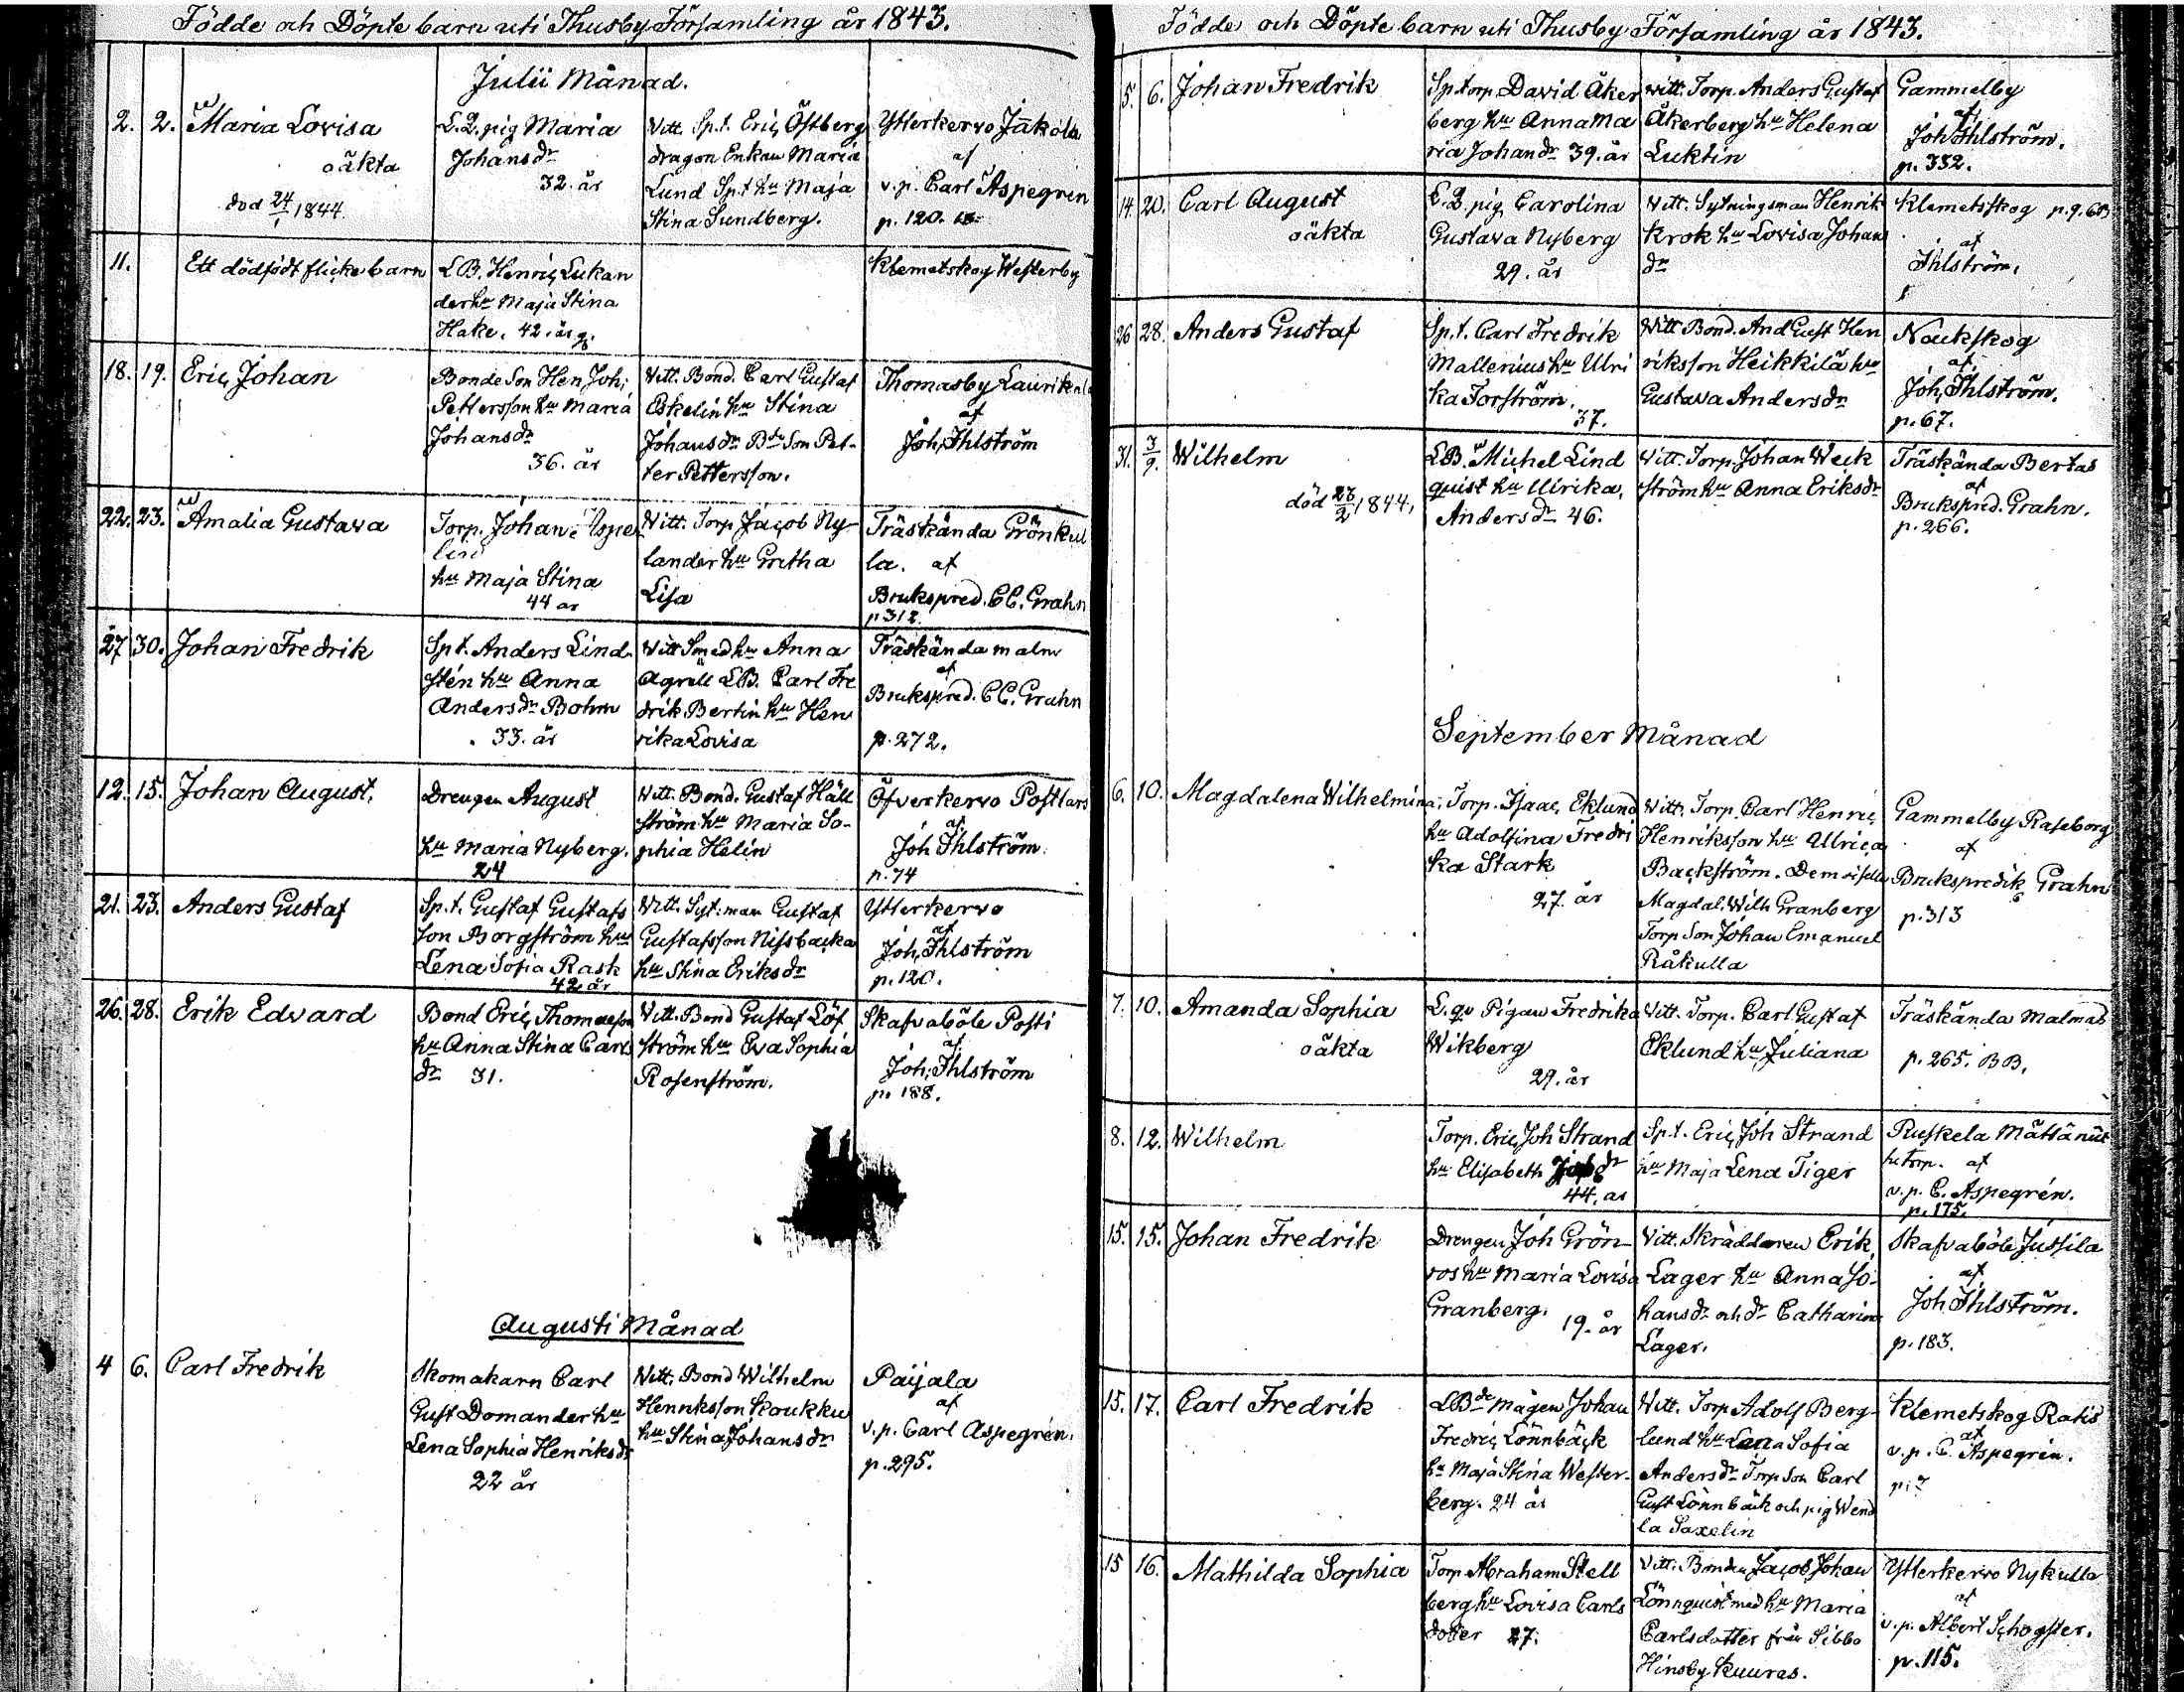 Födde och Döpte barn uti Thusby Församling år 1843.
Julii Månad.
2. 2. Maria Lovisa
oäkta
död 24/1 1844.
L.Q. pig Maria
Johansdr
32. år
Vitt. Sp.t. Eric Östberg
dragon Enkan Maria
Lund Sp.t hu Maja
Stina Sundberg.
Ytterkervo Jakola
af
v.p. Carl Aspegren
p. 120.
11. Ett dödfödt flickebarn
L.B. Henric Lukan
der hu Maja Stina
Hake. 42. år
Klemetskog Westerby
18. 19. Eric Johan
Bonde Son Hen Joh;
Pettersson hu Maria
Johansdr
36. år
Vitt. Bond. Carl Gustaf
Eskelin hu Stina
Johansdr Bde Son Pet-
ter Pettersson.
Thomasby Laurikala
af
Joh. Ihlström
22. 23. Amalia Gustava
Torp. Johan Aspe
lin
hu Maja Stina
44 år
Vitt. Torp Jacob Ny-
lander hu Gretha
Lisa
Träskända Grönkul
la. af
Brukspred. C C. Grahn
p 312.
27 30. Johan Fredrik
Sp.t. Anders Lind
stén hu Anna
Andersdr Bohm
33. år
Vitt Smed hu Anna
Agrell L.B. Carl Fre
drik Bertin hu Hen
rika Lovisa
Träskända malm
af
Brukspred. C C. Grahn
p. 272.
12. 15. Johan August.
Drengen August
hu Maria Nyberg.
24
Vitt. Bond. Gustaf Häll
ström hu Maria So-
phia Helin
Öfverkervo Postlars
af
Joh Ihlström.
p. 74
21. 23. Anders Gustaf
Sp.t. Gustaf Gustafs
son Borgström hu
Lena Sofia Rask
42 år
Vitt. Syt. man Gustaf
Gustafsson Nissbacka
hu Stina Eriksdr
Ytterkervo
af
Joh. Ihlström
p. 120.
26. 28. Erik Edvard
Bond Eric Thomasson
hu Anna Stina Carls
dr 31.
Vitt. Bond Gustaf Löf
ström hu Eva Sophia
Rosenström.
Skafvaböle Posti
af
Joh; Ihlström
p. 188.
Augusti Månad
4 6. Carl Fredrik
Skomakarn Carl
Gust Domander hu
Lena Sophia Henriksdr
22 år
Vitt. Bond Wilhelm
Henriksson Skoukku
hu Stina Johansdr
Paijala
af
v.p. Carl Aspegrén.
p. 295.
Födde och Döpte barn uti Thusby Församling år 1843.
5. 6. Johan Fredrik
Sp.torp. David Åker
berg hu Anna Ma
ria Johandr 39. år
Witt. Torp. Anders Gustaf
Åkerberg hu Helena
Luktin
Gammelby
af
Joh Ihlström.
p. 332.
14. 20. Carl August
oäkta
L.Q. pig Carolina
Gustava Nyberg
29. år
Vitt. Sytningsman Henrik
Krok hu Lovisa Johan
dr
Klemetskog
af
Ihlström.
26 28. Anders Gustaf
Sp.t. Carl Fredrik
Mallenius hu Ulri
ka Forström.
37.
Witt Bond. And Gust Hen
riksson Heikkilä hu
Gustava Andersdr
Nackskog
af
Joh, Ihlström.
p. 67.
31. 3/9. Wilhelm
död 23/2 1844.
L.B. Michel Lind
quist hu Ulrika,
Andersdr 46.
Witt. Torp. Johan Weck
ström hu Anna Eriksdr
Träskända Bertas
af
Brukspred. Grahn.
p. 266.
September Månad
6. 10. Magdalena Wilhelmina,
Torp. Isaac Eklund
hu Adolfina Fredri
ka Stark
27. år
Vitt. Torp Carl Henric
Henriksson hu Ullrica
Backström. Demoiselle
Magdal. Wilh Granberg
Torp Son Johan Emanuel
Råkulla
Gammelby Raseborg
af
Brukspredik Grahn
p. 313
7. 10. Amanda Sophia
oäkta
L. qv Pigan Fredrika
Wikberg
29. år
Vitt. Torp. Carl Gustaf
Eklund hu Juliana
Träskända Malmas
p. 265. BB.
8. 12. Wilhelm
Torp. Eric Joh Strand
hu Elisabeth
44. år
Sp.t. Eric Joh Strand
hu Maja Lena Tiger
Ruskela
torp. af
v.p. C. Aspegrén.
p. 175.
15. 15. Johan Fredrik
Drengen Joh Grön-
ros hu Maria Lovisa
Granberg.
19. år
Vitt. Skräddaren Erik
Lager hu Anna Jo-
hansdr och dr Catharina
Lager.
Skafvaböle Jussila
af
Joh Ihlström.
p. 183.
15. 17. Carl Fredrik
L Bde mågen Johan
Fredric Lönnbäck
hu Maja Stina Wester-
berg. 24 år
Vitt. Torp Adolf Berg-
lund hu Lena Sofia
Andersdr Torp Son Carl
Gust Lönnbäck och pig Wend
la Saxelin
Klemetskog Ratis
af
v.p. C. Aspegrén.
p. 7
15 16. Mathilda Sophia
Torp Abraham Stell
berg hu Lovisa Carls
dotter 27.
Vitt. Bonden Jacob Johan
Lönnquist med hu Maria
Carlsdotter från Sibbo
Hinsby Kuuras.
Ytterkervo Nykulla
af
v.p. Albert Schogster.
p. 115.